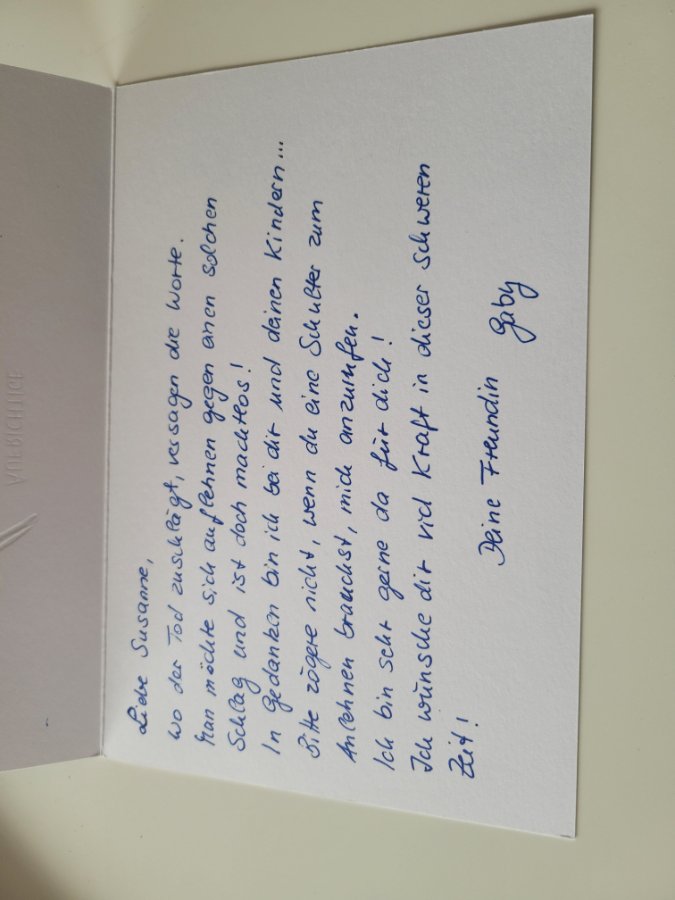 Liebe Susanne,
wo der Tod zuschlägt, versagen die Worte.
Man möchte sich auflehnen gegen einen solchen
Schlag und ist doch machtlos!
In Gedanken bin ich bei dir und deinen Kindern...
Bitte zögere nicht, wenn du eine Schulter zum
Anlehnen brauchst, mich anzurufen.
Ich bin sehr gerne da für dich!
Ich wünsche dir viel Kraft in dieser schweren
Zeit!
Deine Freundin Gaby